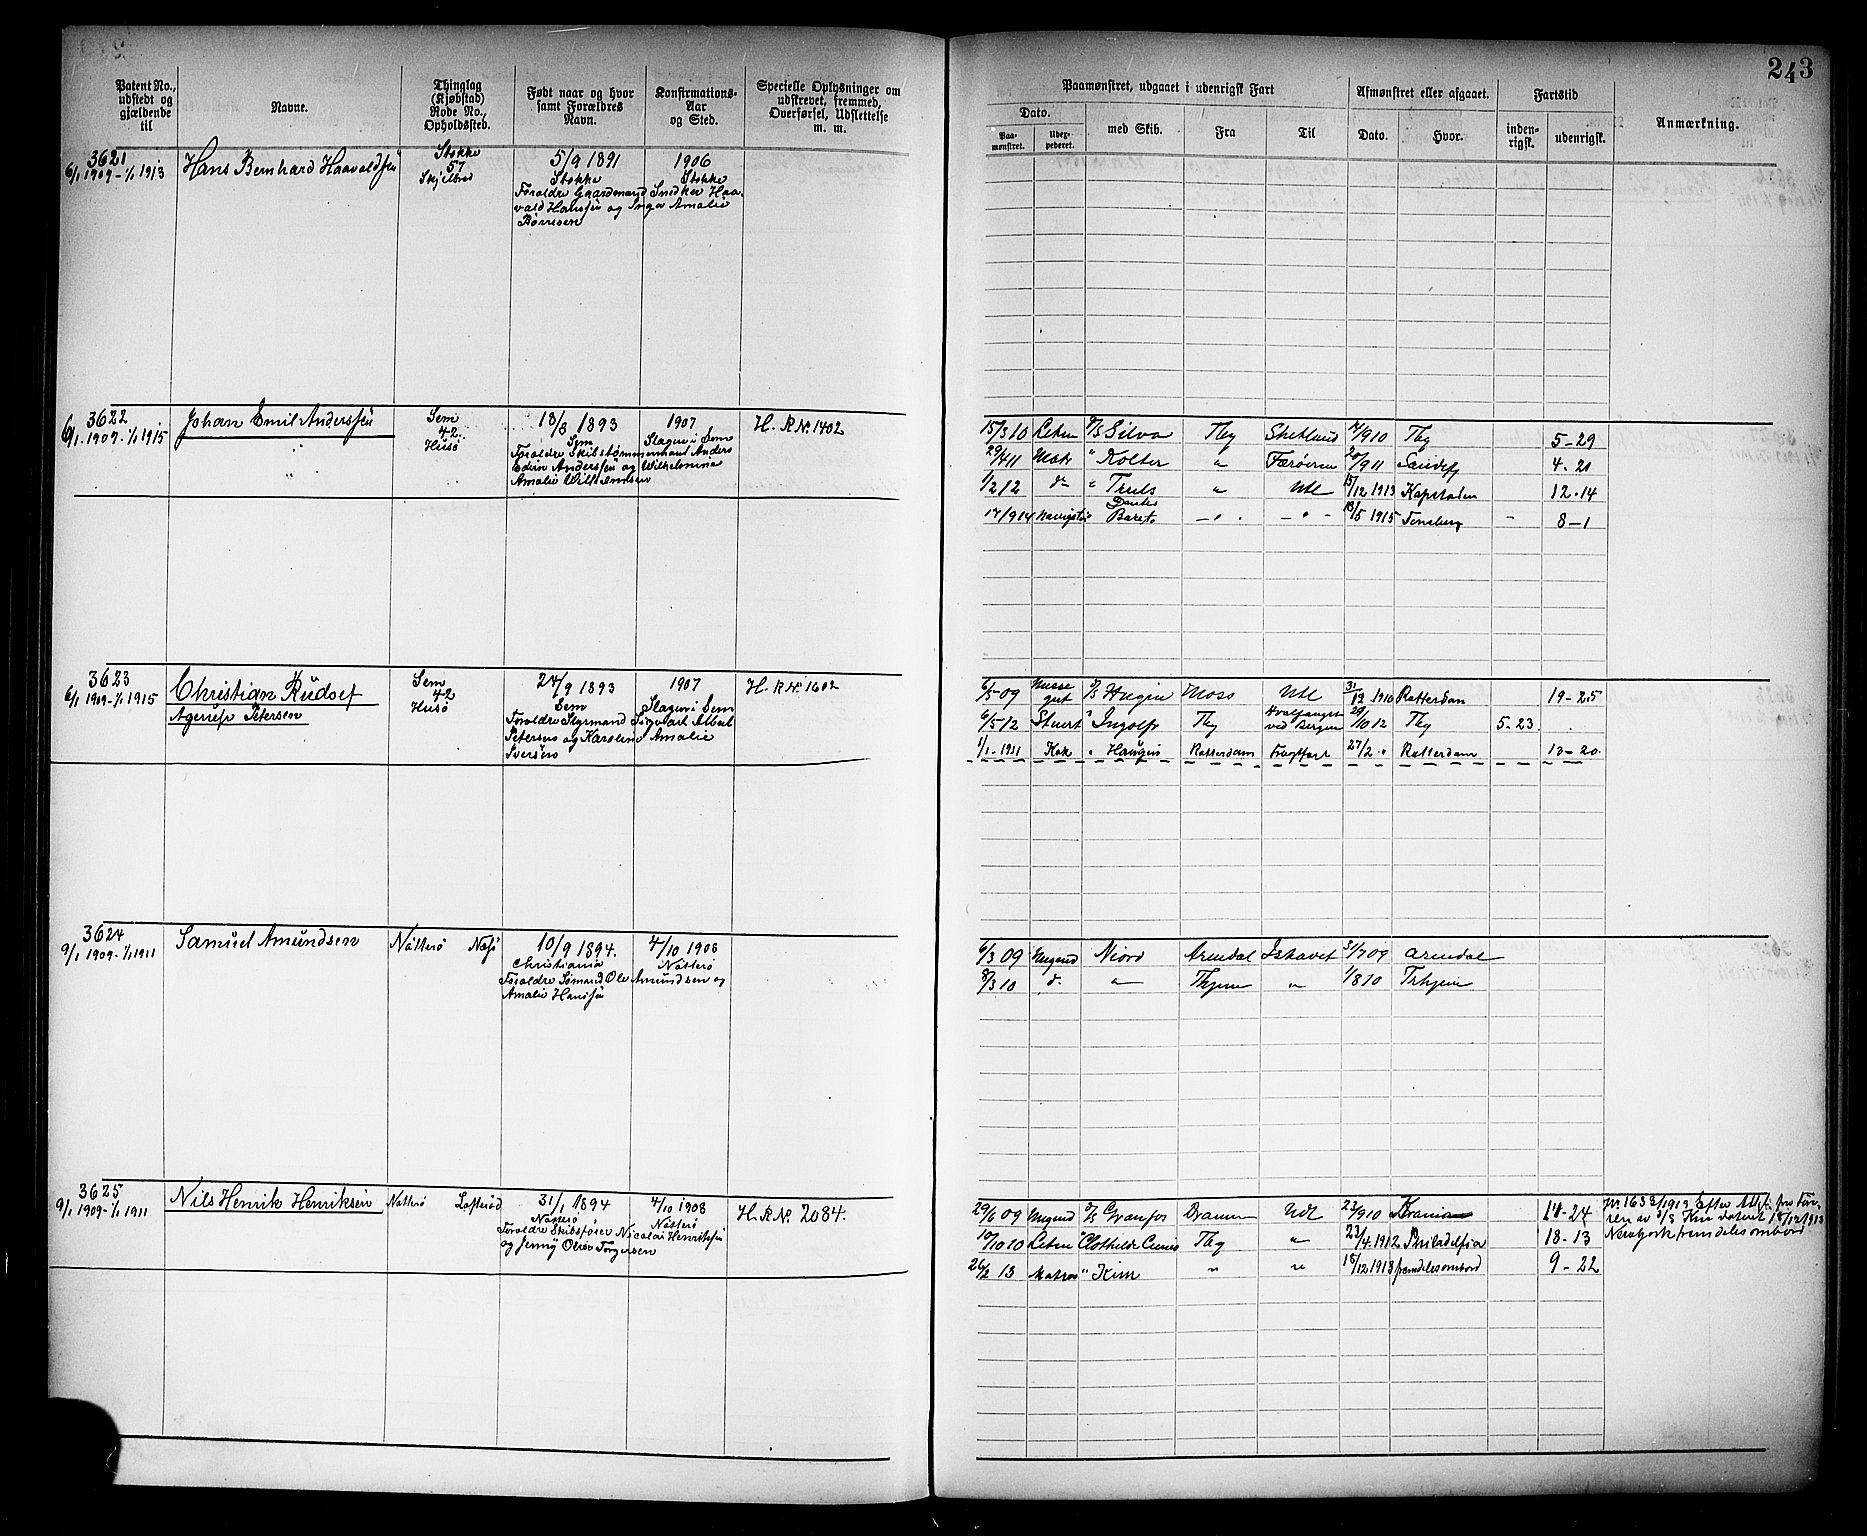 243
Patent No., udstedt og gjældende til
Navne.
Thinglag (Kjøbstad) Rode No., Opholdssted.
Født naar og hvor samt Forældres Navn.
Konfirmations-Aar og Sted.
Specielle Oplysninger om udskrevet, fremmed, Overførsel, Udslettelse m. m.
Paamønstret, udgaaet i udenrigsk Fart
Dato.
Paa-mønstret.
med Skib.
Fra
Til
Afmønstret eller afgaaet.
Dato.
Hvor.
Fartstid
inden-rigsk.
udenrigsk.
Anmærkning.
3621
6/1 1909 - 1/1 1913
Hans Bernhard Haavaldsen
Stokke
57
5/9 1891
Stokke
Foraldre Gaardemand Snedker Haa-
vald Hanssen og Inga Amalie
Børresen
1906
Stokke
3622
6/1 1909 - 1/1 1915
Johan Emil Anderssen
Sem
42
Husø
13/8 1893
Sem
Foraldre Skibstømmermand Anders
Edvin Anderssen og Wilhelmina
Amalie
1907
Slagen i Sem
H. R. No. 1402
15/3 10 Letm D/S Silva Tbg Shetland 14/9 10 Tbg 5-29
29/4 11 Matr " Kolter " Færøerne 20/9 11 Sandefj 4-21
1/2 12 do " Truls " Udl 15/12 1913 Kapstaden 12-14
17/9 14 Bark 13/5 1915 Tønsberg 8-1
3623
6/1 1909 - 1/1 1915
Christian Rudolf
Agerup Petersen
Sem
42
Husø
24/9 1893
Sem
Foraldre Styrmand Sigvart Albert
Petersen og Karoline Amalie
Iversen
1907
Slagen i Sem
H. R. No. 1602
6/5 09 Messegut D/S Hugin Moss Udl 31/12 1910 Rotterdam 19-25
6/5 12 Stuert " Ingolf Tbg Hvalfangst ved Bergen 29/10 12 Tbg 5-23
1/1 - 1911 Kok " Haugin Rotterdam Fragtfart 27/2 " Rotterdam 13-20
3624
9/1 1909 - 1/1 1911
Samuel Amundsen
Nøtterø
10/9 1894.
Christiania
Foraldre Sømand Ole Amundsen og
Amalie Hanssen
4/10 1908
Nøtterø
6/3 09 Ungmd Njord Arendal Ishavet 31/7 09 Arendal
8/3 10 d. " Thjem " 1/8 10 Trhjem
3625
9/1 1909 - 1/1 1911
Nils Henrik Henriksen
Nøtterø
31/1 1894
Nøtterø
Foraldre Skibsfører Nicolai Henriksen
og Jenny Olava Torgersen
4/10 1908
Nøtterø
H. R. No. 2084.
29/6 09 Ungmd D/S Granfos Drammen Udl 23/9 10 Krania 14-24
10/10 10 Letm " Clothilde Cuneo Tbg " 23/4 1912 Philadelfia 18-13
26/2 13 Matros " Kim " " 18/12 1913 fremdeles ombord 9-22
Newyork fremdeles ombord